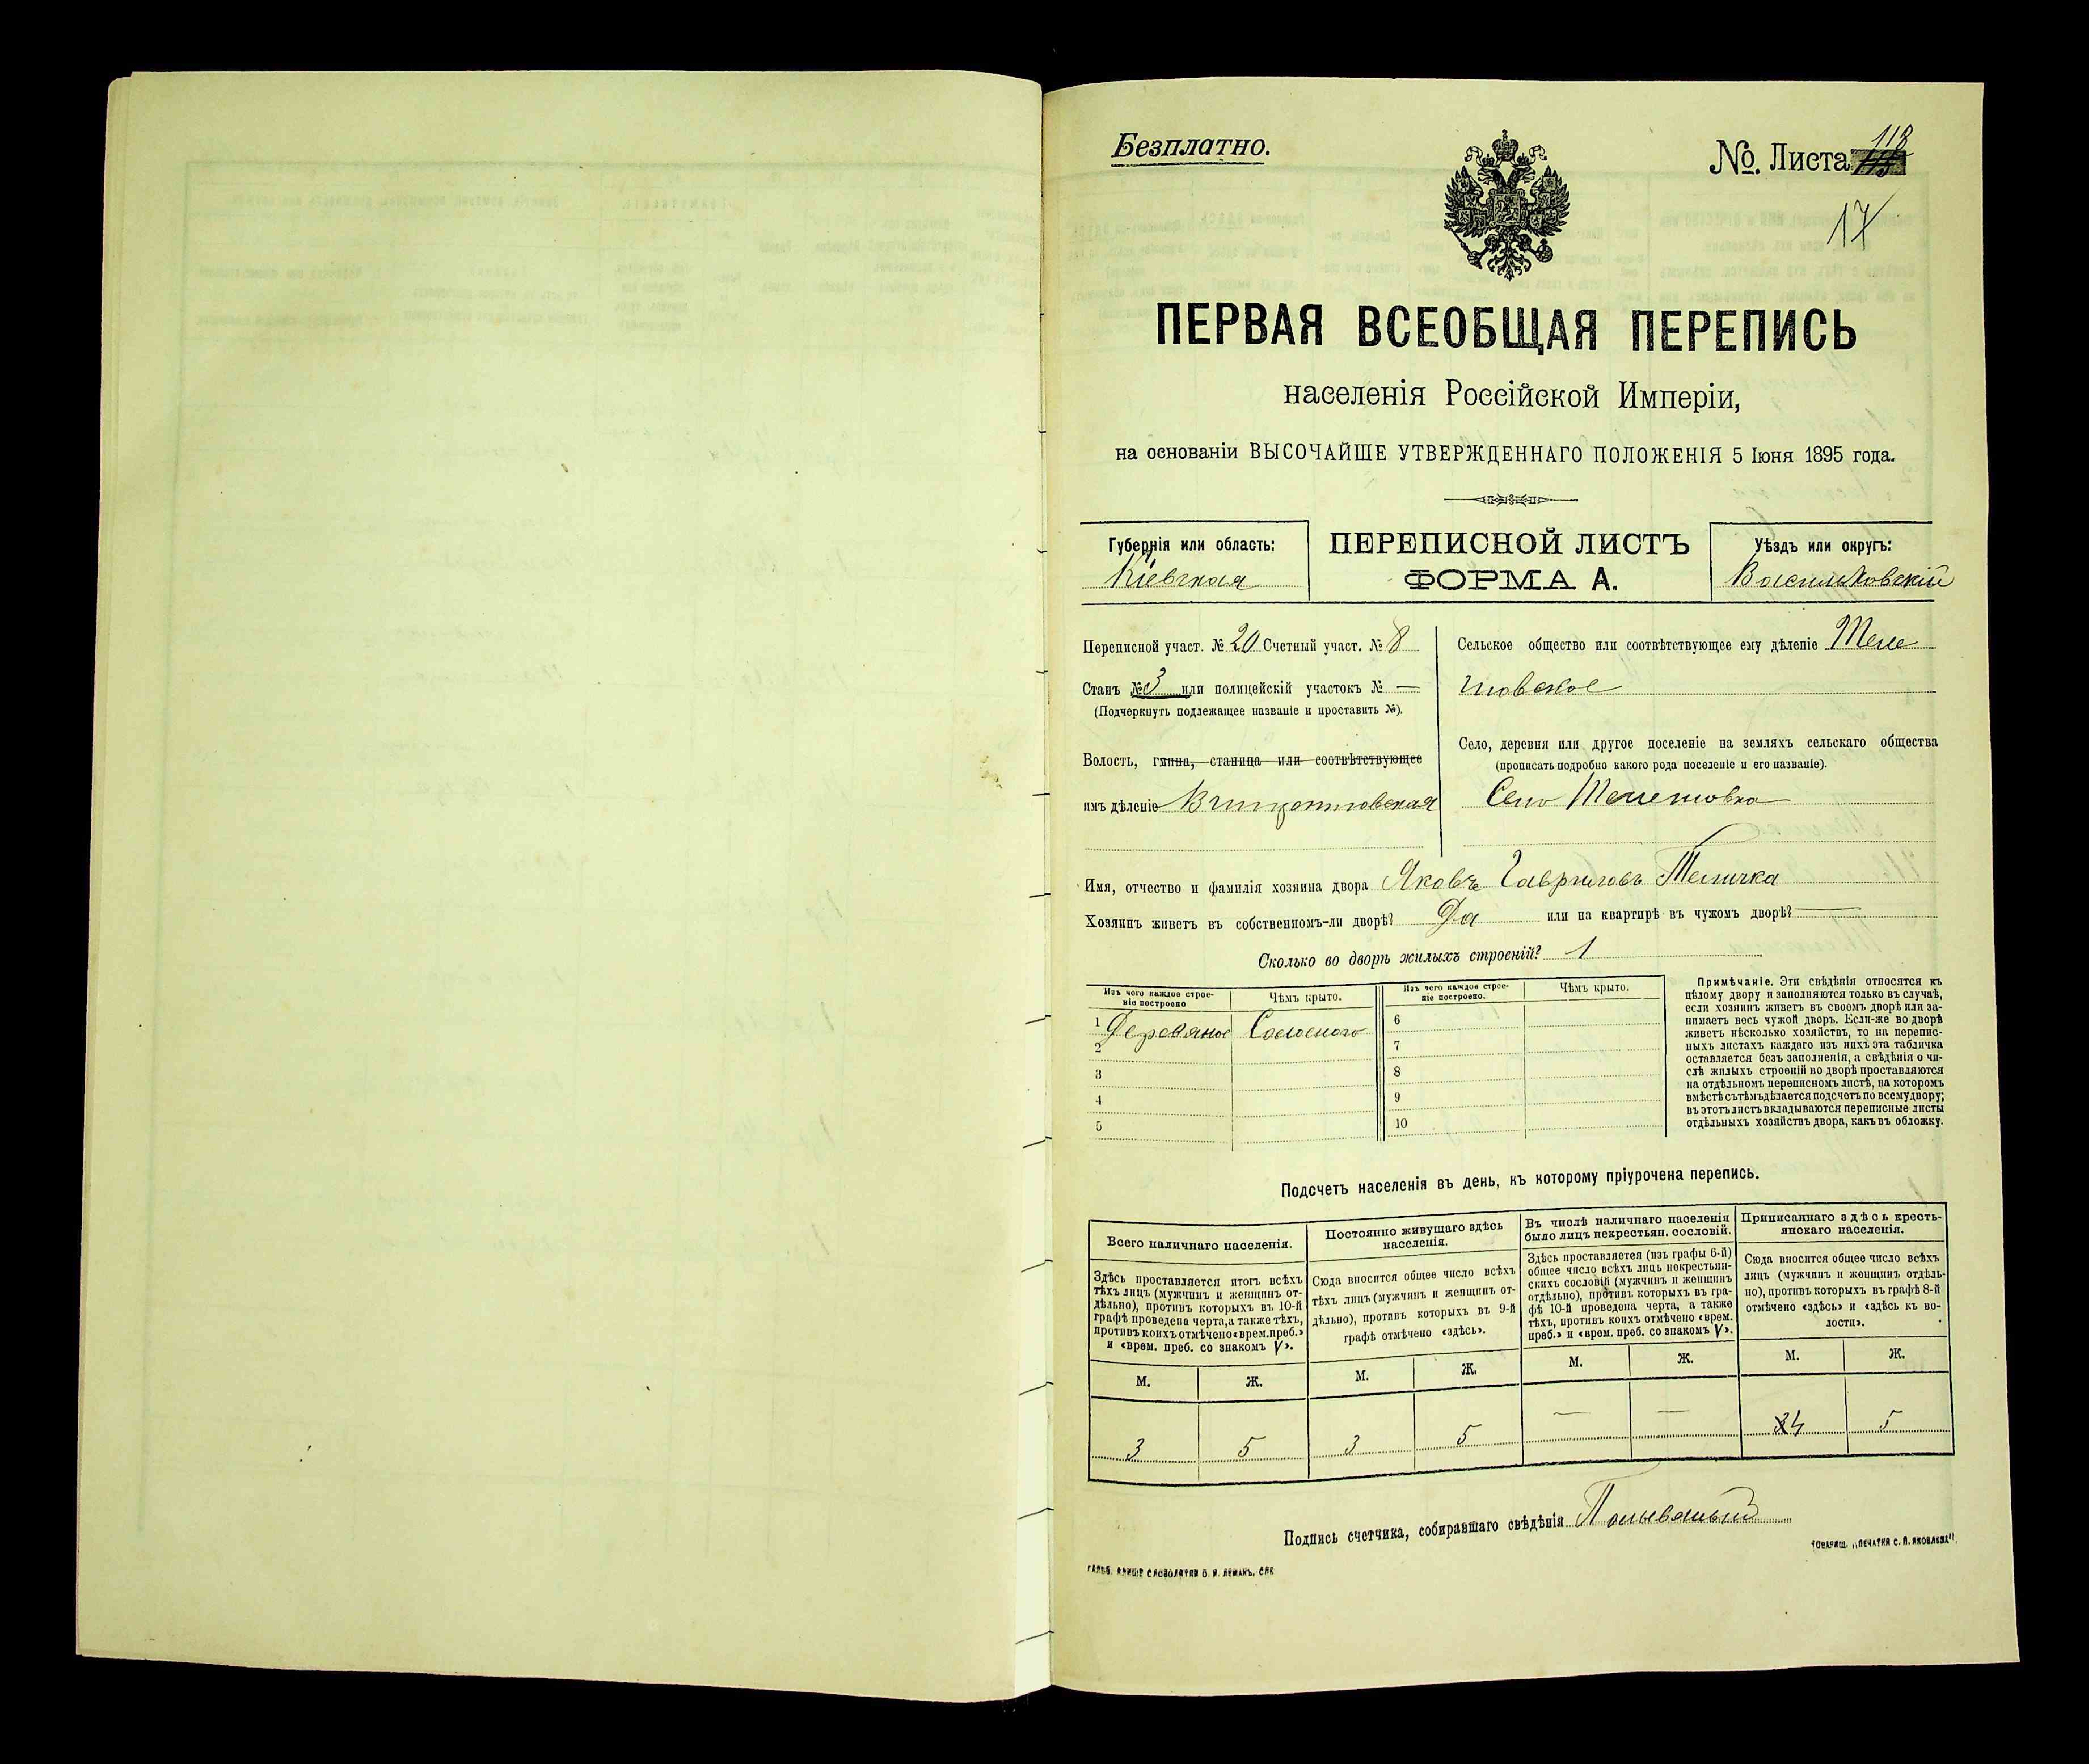 Безплатно.
№. Листа 118
17
ПЕРВАЯ ВСЕОБЩАЯ ПЕРЕПИСЬ
населенія Россійской Имперіи,
на основаніи ВЫСОЧАЙШЕ УТВЕРЖДЕННАГО ПОЛОЖЕНІЯ 5 Іюня 1895 года.
Губернія или область:
Кіевская
ПЕРЕПИСНОЙ ЛИСТЪ
ФОРМА А.
Уѣздъ или округъ:
Васильковскій
Переписной участ. № 20 Счетный участ. № 8
Станъ № 3 или полицейскій участокъ № —
(Подчеркнуть подлежащее названіе и проставить №).
Волость, гмина, станица или соотвѣтствующее
имъ дѣленіе
Сельское общество или соотвѣтствующее ему дѣленіе Теле
шовское
Село, деревня или другое поселеніе на земляхъ сельскаго общества
(прописать подробно какого рода поселеніе и его названіе).
Село Телешовка
Имя, отчество и фамилія хозяина двора Яковъ Гавриловъ Теличка
Хозяинъ живетъ въ собственномъ-ли дворѣ? Да или на квартирѣ въ чужомъ дворѣ? —
Сколько во дворѣ жилыхъ строеній? 1
Изъ чего каждое строе-
ніе построено
Чѣмъ крыто.
Изъ чего каждое строе-
ніе построено.
Чѣмъ крыто.
1 Деревяное Соломою
2
3
4
5
6
7
8
9
10
Примѣчаніе. Эти свѣдѣнія относятся къ
цѣлому двору и заполняются только въ случаѣ,
если хозяинъ живетъ въ своемъ дворѣ или за-
нимаетъ весь чужой дворъ. Если-же во дворѣ
живетъ нѣсколько хозяйствъ, то на перепис-
ныхъ листахъ каждаго изъ нихъ эта табличка
оставляется безъ заполненія, а свѣдѣнія о чи-
слѣ жилыхъ строеній во дворѣ проставляются
на отдѣльномъ переписномъ листѣ, на которомъ
вмѣстѣ съ тѣмъ дѣлается подсчетъ по всему двору;
въ этотъ листъ вкладываются переписные листы
отдѣльныхъ хозяйствъ двора, какъ въ обложку.
Подсчетъ населенія въ день, къ которому пріурочена перепись.
Всего наличнаго населенія.
Здѣсь проставляется итогъ всѣхъ
тѣхъ лицъ (мужчинъ и женщинъ от-
дѣльно), противъ которыхъ въ 10-й
графѣ проведена черта, а также тѣхъ,
противъ коихъ отмѣчено «врем. преб.»
и «врем. преб. со знакомъ V».
М. Ж.
3 5
Постоянно живущаго здѣсь
населенія.
Сюда вносится общее число всѣхъ
тѣхъ лицъ (мужчинъ и женщинъ от-
дѣльно), противъ которыхъ въ 9-й
графѣ отмѣчено «здѣсь».
М. Ж.
3 5
Въ числѣ наличнаго населенія
было лицъ некрестьян. сословій.
Здѣсь проставляется (изъ графы 6-й)
общее число всѣхъ лицъ некрестьян-
скихъ сословій (мужчинъ и женщинъ
отдѣльно), противъ которыхъ въ гра-
фѣ 10-й проведена черта, а также
тѣхъ, противъ коихъ отмѣчено «врем.
преб.» и «врем. преб. со знакомъ V».
М. Ж.
— —
Приписаннаго здѣсь кресть-
янскаго населенія.
Сюда вносится общее число всѣхъ
лицъ (мужчинъ и женщинъ отдѣль-
но), противъ которыхъ въ графѣ 8-й
отмѣчено «здѣсь» и «здѣсь къ во-
лости».
М. Ж.
4 5
Подпись счетчика, собиравшаго свѣдѣнія
Товарищ. „Печатня С. П. Яковлева".
СЛОВОЛИТНЯ О. И. ЛЕМАНЪ, СПБ